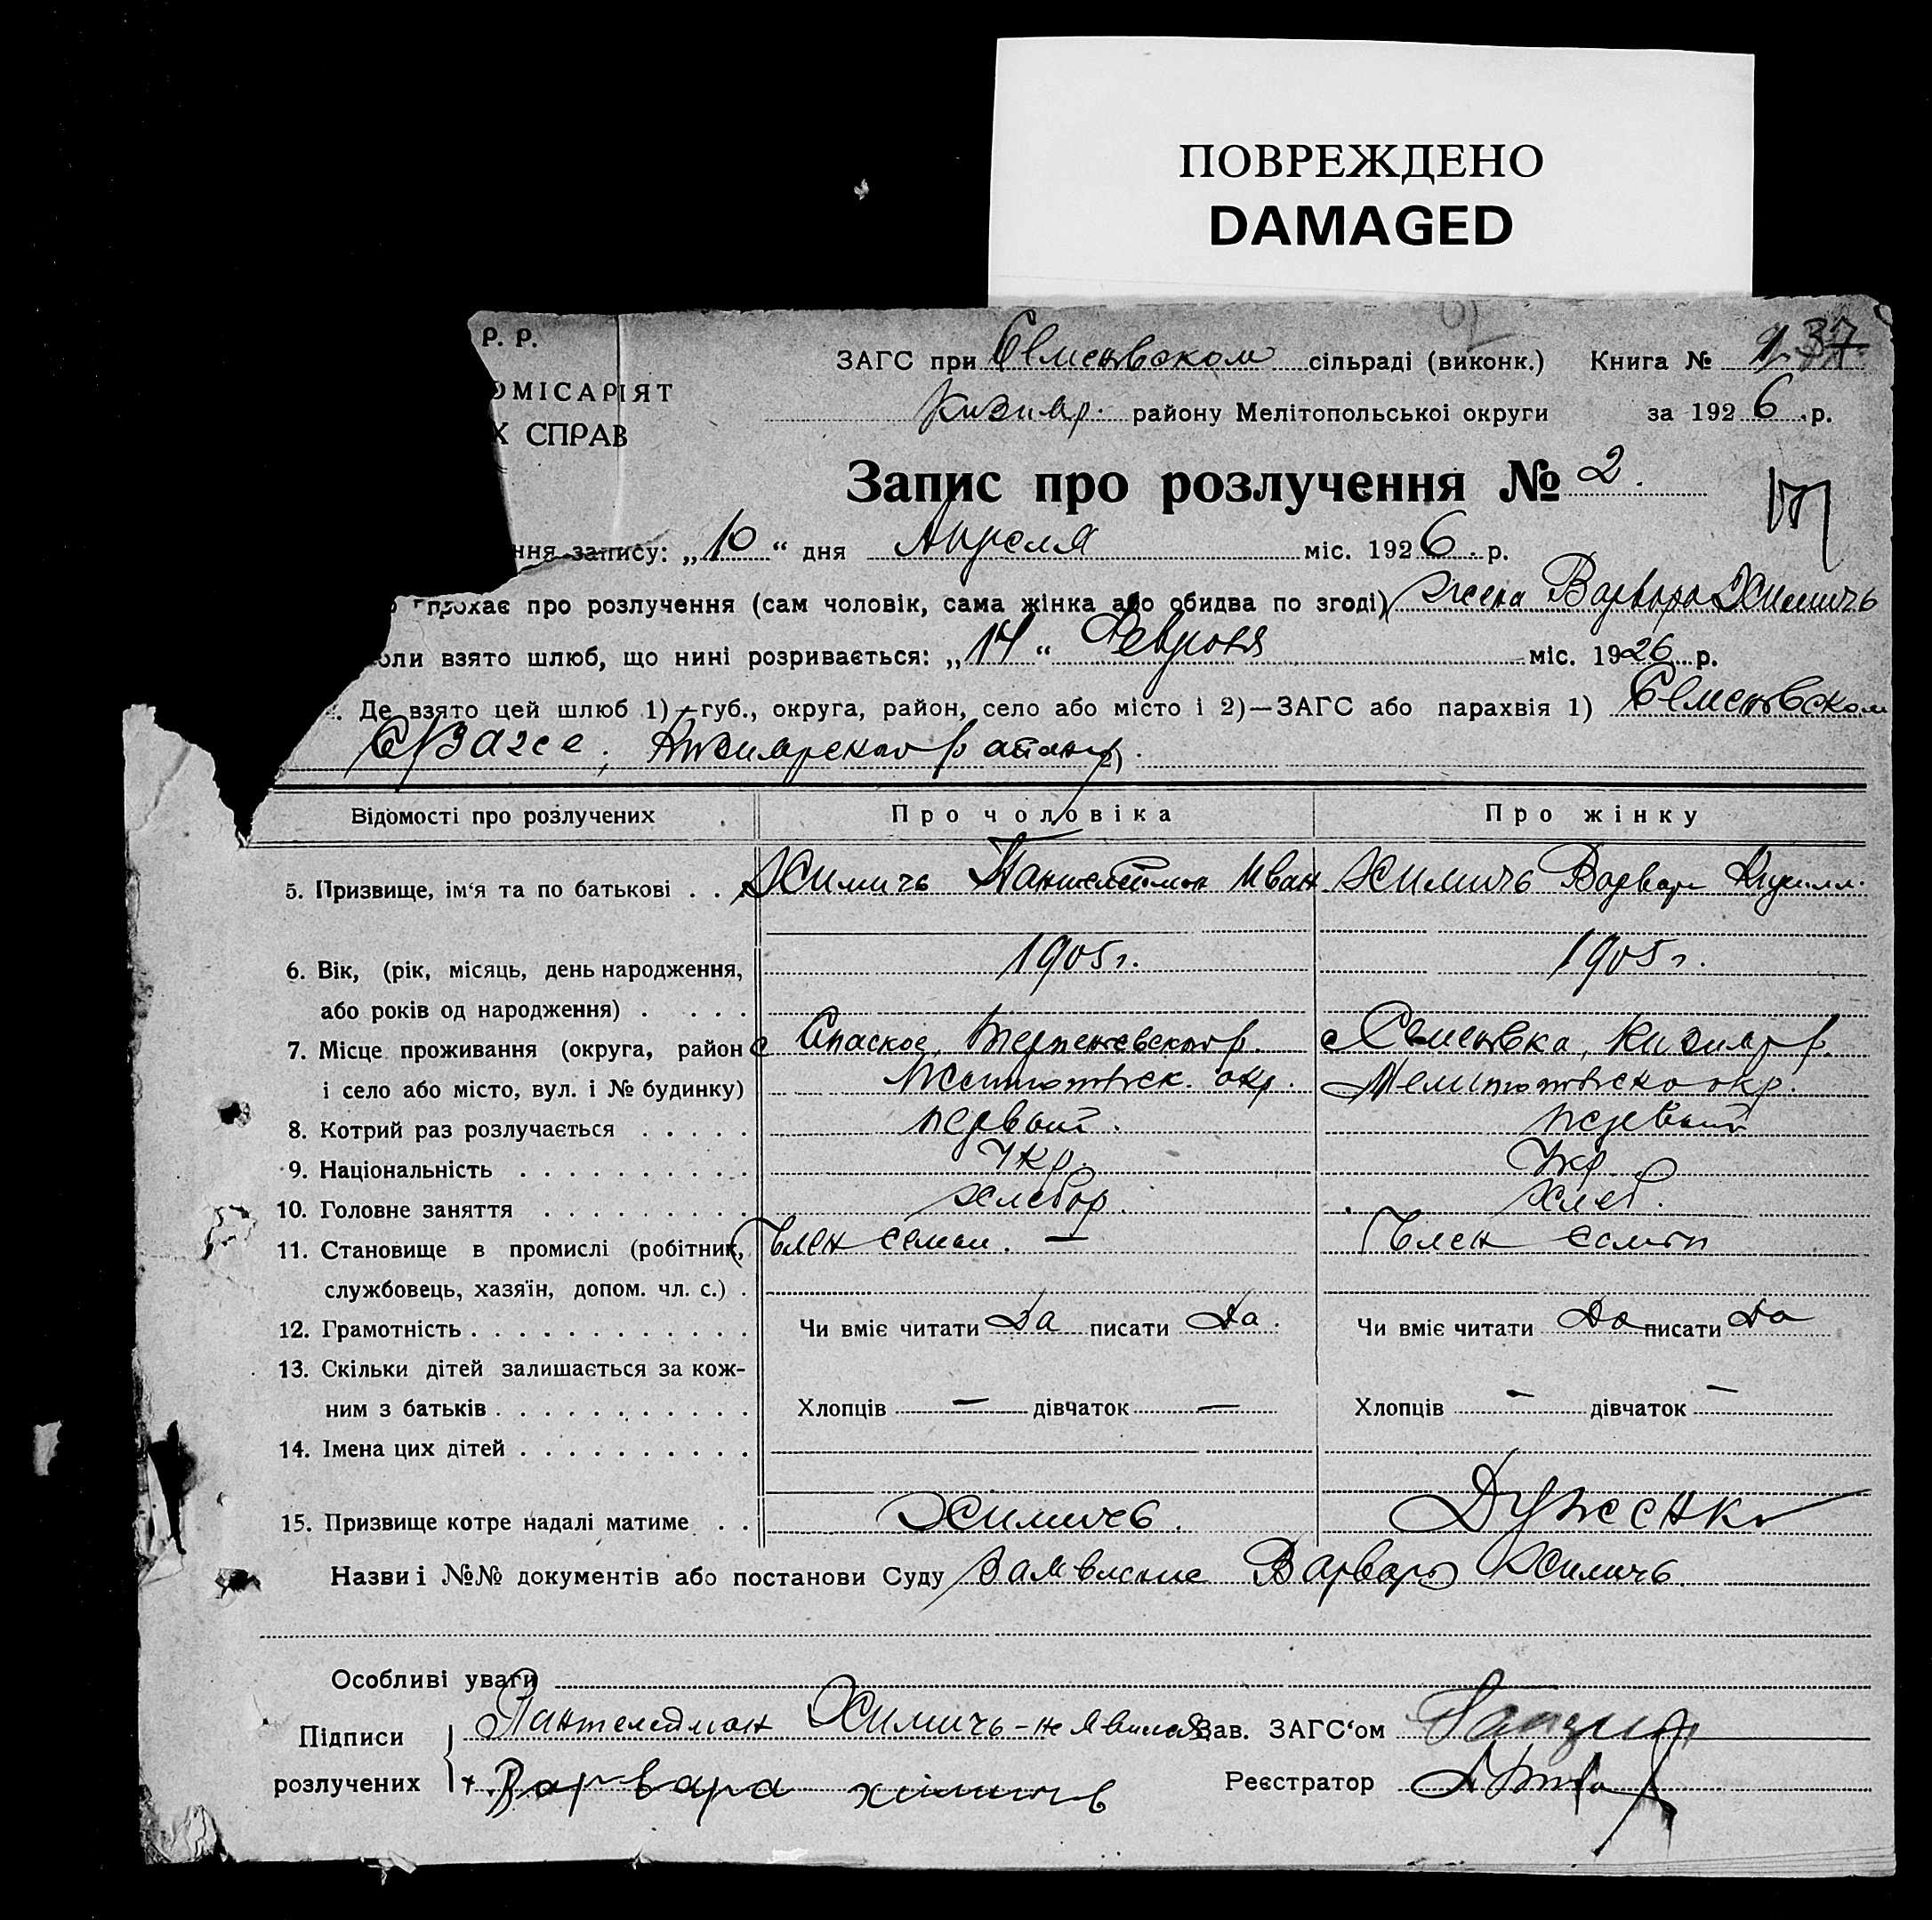 ПОВРЕЖДЕНО
DAMAGED
Р. Р.
ОМІСАРІЯТ
Х СПРАВ
ЗАГС при Семеновском сільраді (виконк.) Книга № 37
Кизияр. району Мелітопольської округи за 1926 р.
Запис про розлучення № 2.
ння запису: „10“ дня Апреля міс. 1926 р.
прохає про розлучення (сам чоловік, сама жінка або обидва по згоді) жена Варвара Химичь
оли взято шлюб, що нині розривається: „14“ Февраля міс. 1926 р.
Де взято цей шлюб 1)—губ., округа, район, село або місто і 2)—ЗАГС або парахвія 1) Семеновском
Кизиярского района 2)
Відомості про розлучених Про чоловіка Про жінку
5. Призвище, ім‘я та по батькові . . Химичь Пантелеймон Иван Химичь Варвара Кирилл.
6. Вік, (рік, місяць, день народження, 1905 г. 1905 г.
або років од народження) . . . . .
7. Місце проживання (округа, район с Спаское, Терпеневского р. с Семеновка, Кизияр р.
і село або місто, вул. і № будинку) Мелитопольск. окр. Мелитопольского окр.
8. Котрий раз розлучається . . . . . первый. первый
9. Національність . . . . . . . . . . Укр. Укр.
10. Головне заняття . . . . . . . . . хлебор. хлеб.
11. Становище в промислі (робітник, Член семьи. — Член семьи
службовець, хазяїн, допом. чл. с.) .
12. Грамотність . . . . . . . . . . . . Чи вміє читати Да писати Да. Чи вміє читати Да писати Да
13. Скільки дітей залишається за кож-
ним з батьків . . . . . . . . . . . Хлопців — дівчаток — Хлопців — дівчаток —
14. Імена цих дітей . . . . . . . . . .
15. Призвище котре надалі матиме . . Химичь. Дуженко
Назви і №№ документів або постанови Суду Заявление Варвары Химичь.
Особливі уваги
Підписи Пантелеймон Химичь - не явился Зав. ЗАГС‘ом
розлучених Варвара хімичь Реєстратор